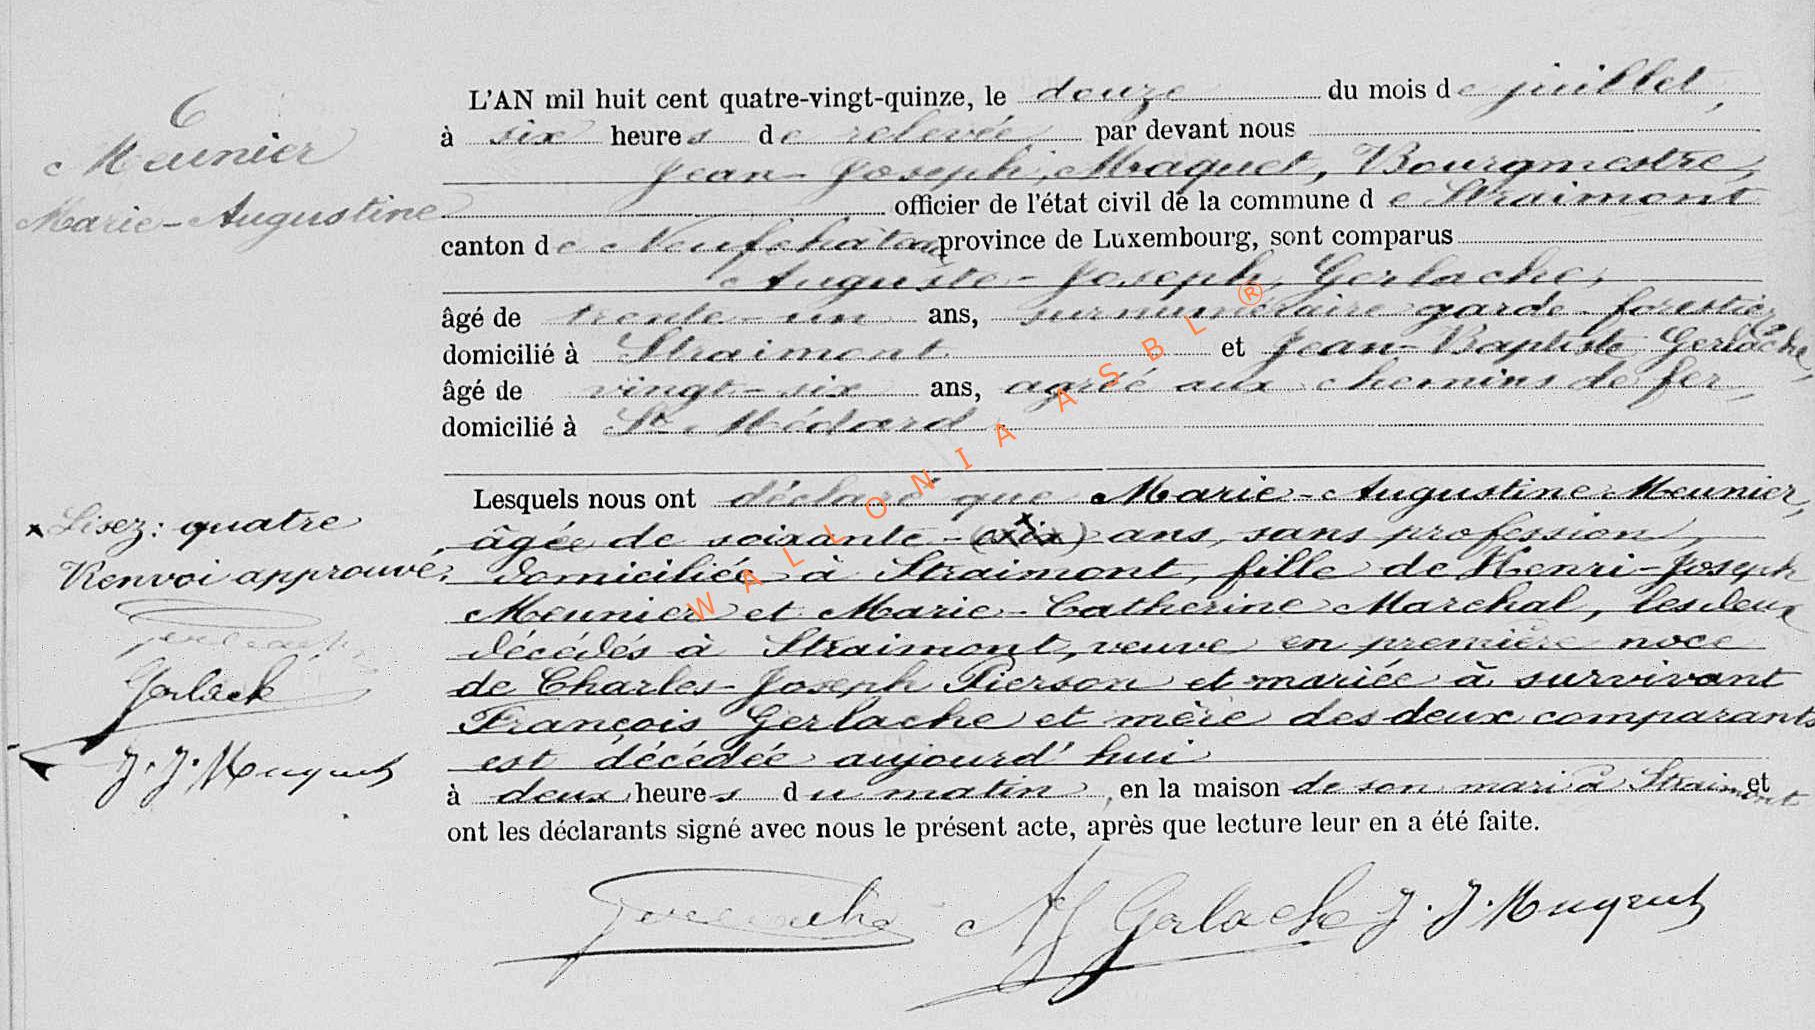 6
Meunier
Marie-Augustine
L'AN mil huit cent quatre-vingt-quinze, le douze du mois de juillet,
à six heures de relevée par devant nous
Jean-Joseph Maquet, Bourgmestre,
officier de l'état civil de la commune de Straimont
canton de Neufchâteau province de Luxembourg, sont comparus
Auguste-Joseph Gerlache,
âgé de trente-un ans, surnuméraire garde-forestier
domicilié à Straimont et Jean-Baptiste Gerlache,
âgé de vingt-six ans, agréé aux chemins de fer,
domicilié à St Médard
Lesquels nous ont déclaré que Marie-Augustine Meunier,
âgée de soixante-(six) ans, sans profession,
domiciliée à Straimont, fille de Henri-Joseph
Meunier et Marie-Catherine Marchal, les deux
décédés à Straimont, veuve en première noce
de Charles-Joseph Pierson et mariée à survivant
François Gerlache et mère des deux comparants
est décédée aujourd'hui
à deux heures du matin, en la maison de son mari à Straimont et
ont les déclarants signé avec nous le présent acte, après que lecture leur en a été faite.
x Lisez: quatre
Renvoi approuvé.
Gerlache
J. J. Maquet
Gerlache AJ Gerlache J. J. Maquet
WALLONIA ASBL ®